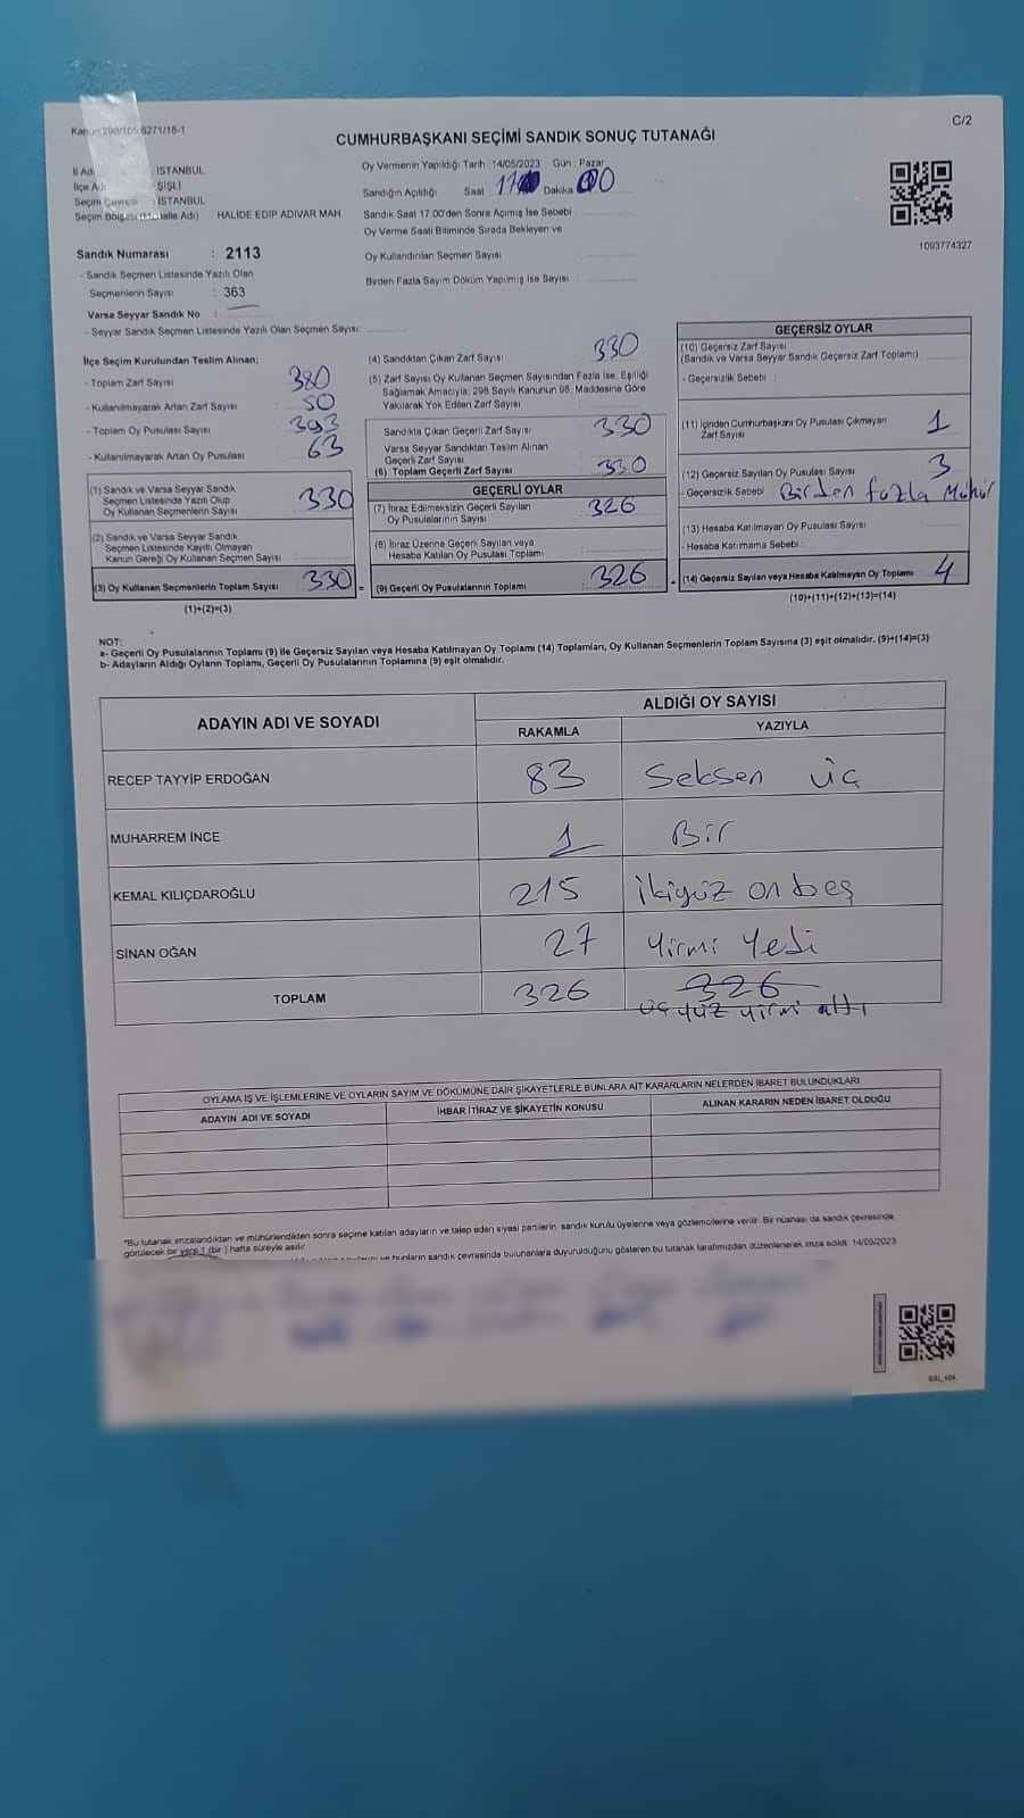 C/2
CUMHURBAŞKANI SEÇİMİ SANDIK SONUÇ TUTANAĞI
İSTANBUL
ŞİŞLİ
İSTANBUL
HALİDE EDİP ADIVAR MAH
Oy Vermenin Yapıldığı Tarih : 14/05/2023 Gün : Pazar
Sandığın Açıldığı Saat Dakika
Sandık Saat 17.00'den Sonra Açılmış İse Sebebi
Oy Verme Saati Bitiminde Sırada Bekleyen ve
Oy Kullandırılan Seçmen Sayısı
Birden Fazla Sayım Döküm Yapılmış İse Sayısı
1093774327
Sandık Numarası : 2113
- Sandık Seçmen Listesinde Yazılı Olan
Seçmenlerin Sayısı : 363
Varsa Seyyar Sandık No :
- Seyyar Sandık Seçmen Listesinde Yazılı Olan Seçmen Sayısı
İlçe Seçim Kurulundan Teslim Alınan:
- Toplam Zarf Sayısı 380
- Kullanılmayarak Artan Zarf Sayısı : 50
- Toplam Oy Pusulası Sayısı 393
- Kullanılmayarak Artan Oy Pusulası 63
(1) Sandık ve Varsa Seyyar Sandık
Seçmen Listesinde Yazılı Olup
Oy Kullanan Seçmenlerin Sayısı 330
(2) Sandık ve Varsa Seyyar Sandık
Seçmen Listesinde Kayıtlı Olmayan
Kanun Gereği Oy Kullanan Seçmen Sayısı
(3) Oy Kullanan Seçmenlerin Toplam Sayısı 330 =
(1)+(2)=(3)
(4) Sandıktan Çıkan Zarf Sayısı 330
(5) Zarf Sayısı Oy Kullanan Seçmen Sayısından Fazla İse, Eşitliği
Sağlamak Amacıyla; 298 Sayılı Kanunun 98. Maddesine Göre
Yakılarak Yok Edilen Zarf Sayısı
Sandıkta Çıkan Geçerli Zarf Sayısı 330
Varsa Seyyar Sandıktan Teslim Alınan
Geçerli Zarf Sayısı
(6) Toplam Geçerli Zarf Sayısı 330
GEÇERLİ OYLAR
(7) İtiraz Edilmeksizin Geçerli Sayılan
Oy Pusulalarının Sayısı 326
(8) İtiraz Üzerine Geçerli Sayılan veya
Hesaba Katılan Oy Pusulası Toplamı
(9) Geçerli Oy Pusulalarının Toplamı 326
GEÇERSİZ OYLAR
(10) Geçersiz Zarf Sayısı
(Sandık ve Varsa Seyyar Sandık Geçersiz Zarf Toplamı)
- Geçersizlik Sebebi :
(11) İçinden Cumhurbaşkanı Oy Pusulası Çıkmayan
Zarf Sayısı 1
(12) Geçersiz Sayılan Oy Pusulası Sayısı 3
- Geçersizlik Sebebi Birden fazla Mühür
(13) Hesaba Katılmayan Oy Pusulası Sayısı
- Hesaba Katılmama Sebebi
(14) Geçersiz Sayılan veya Hesaba Katılmayan Oy Toplamı 4
(10)+(11)+(12)+(13)=(14)
NOT:
a- Geçerli Oy Pusulalarının Toplamı (9) ile Geçersiz Sayılan veya Hesaba Katılmayan Oy Toplamı (14) Toplamları, Oy Kullanan Seçmenlerin Toplam Sayısına (3) eşit olmalıdır. (9)+(14)=(3)
b- Adayların Aldığı Oyların Toplamı, Geçerli Oy Pusulalarının Toplamına (9) eşit olmalıdır.
ADAYIN ADI VE SOYADI
ALDIĞI OY SAYISI
RAKAMLA YAZIYLA
RECEP TAYYİP ERDOĞAN 83 Seksen üç
MUHARREM İNCE 1 Bir
KEMAL KILIÇDAROĞLU 215 ikiyüz onbeş
SİNAN OĞAN 27 Yirmi Yedi
TOPLAM 326 326
üçyüz yirmi altı
OYLAMA İŞ VE İŞLEMLERİNE VE OYLARIN SAYIM VE DÖKÜMÜNE DAİR ŞİKAYETLERLE BUNLARA AİT KARARLARIN NELERDEN İBARET BULUNDUKLARI
ADAYIN ADI VE SOYADI İHBAR İTİRAZ VE ŞİKAYETİN KONUSU ALINAN KARARIN NEDEN İBARET OLDUĞU
"Bu tutanak imzalandıktan ve mühürlendikten sonra seçime katılan adayların ve talep eden siyasi partilerin sandık kurulu üyelerine veya gözlemcilerine verilir. Bir nüshası da sandık çevresinde
görülecek bir yere 1 (bir) hafta süreyle asılır.
bunların sandık çevresinde bulunanlara duyurulduğunu gösteren bu tutanak tarafımızdan düzenlenerek imza edildi. 14/05/2023